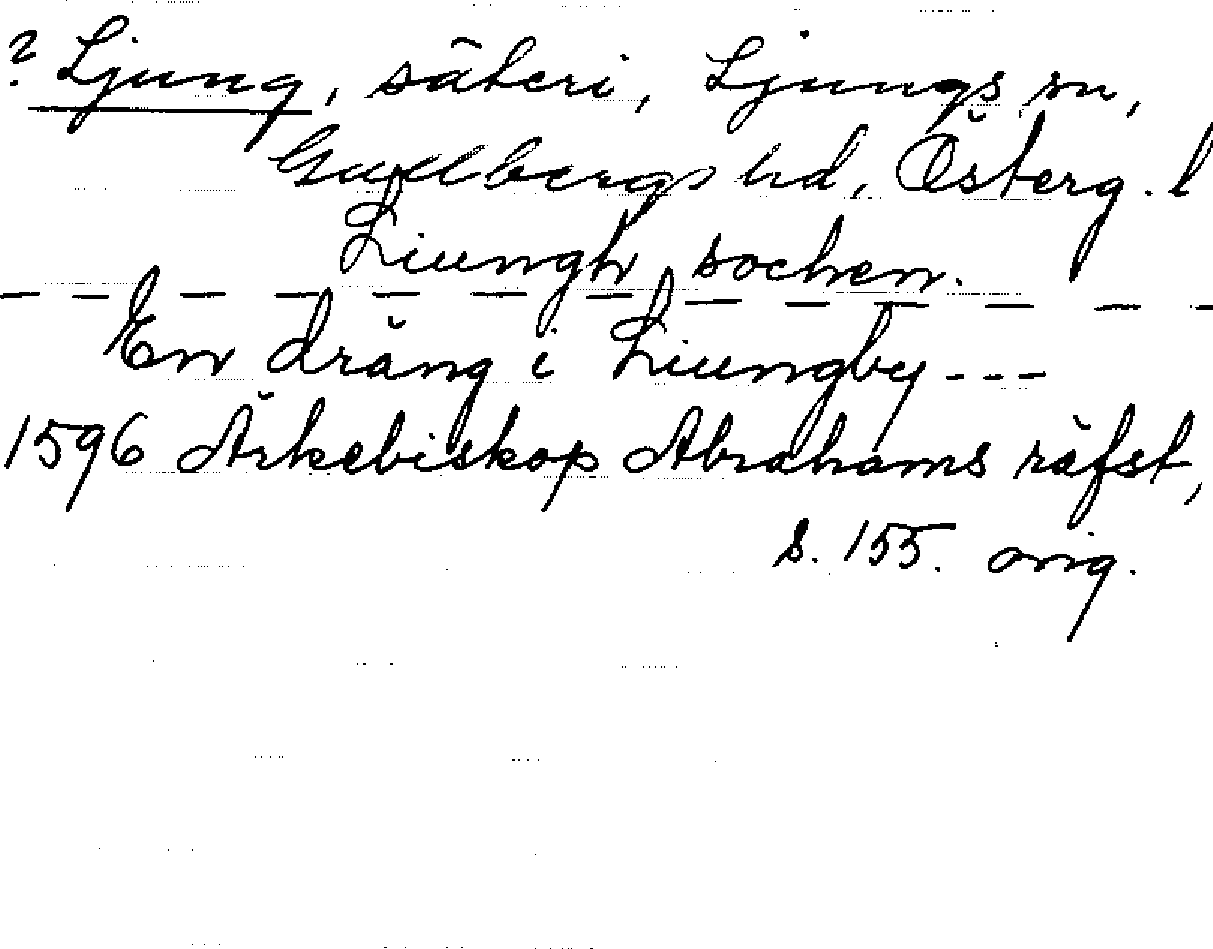 ? Ljung, säteri, Ljungs sn,
Gullbergs hd, Österg. l
Liungh sochen.
— — — — — — — — — — — — —
En dräng i Liungby ---
1596 Ärkebiskop Abrahams räfst,
s. 155. orig.